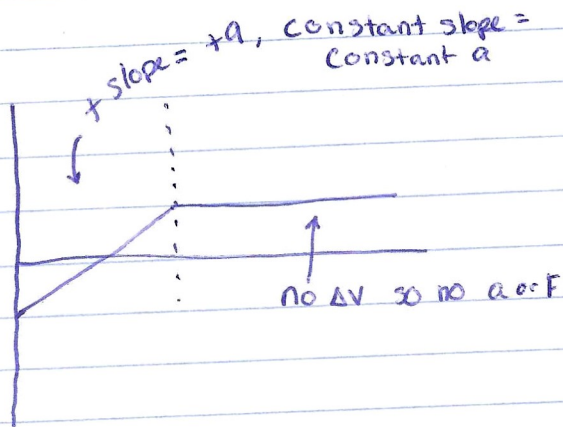 + slope = +a, constant slope =
constant a
no ΔV so no a or F